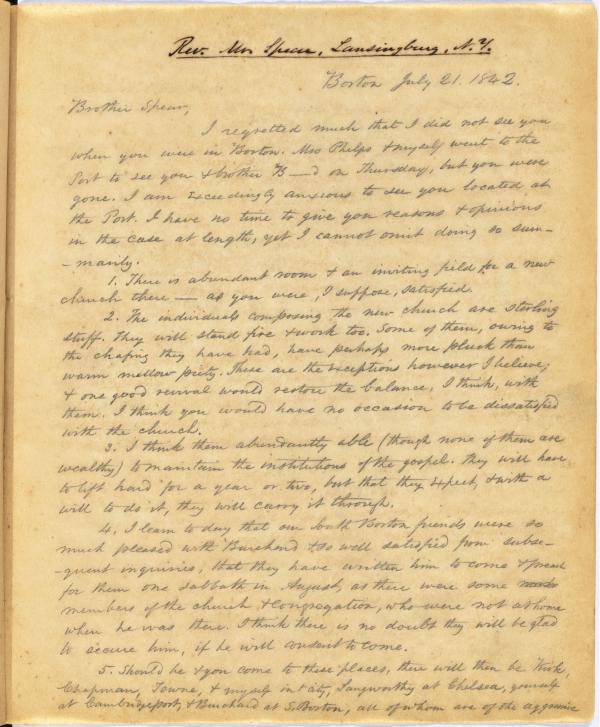 Rev. Mr. Spear, Lansingburg, N.Y.
Boston July 21. 1842.
Brother Spear,
I regretted much that I did not see you
when you were in Boston. Mr Phelps & myself went to the
Port to see you & brother B—d on Thursday, but you were
gone. I am exceedingly anxious to see you located at
the Port. I have no time to give you reasons & opinions
in the case at length, yet I cannot omit doing so sum-
-marily.
1. There is abundant room & an inviting field for a new
church there — as you were, I suppose, satisfied.
2. The individuals composing the new church are sterling
stuff. They will stand fire & work too. Some of them, owing to
the chafing they have had, have perhaps more pluck than
warm mellow piety. These are the exceptions however I believe;
& one good revival would restore the balance, I think, with
them. I think you would have no occasion to be dissatisfied
with the church.
3. I think them abundantly able (though none of them are
wealthy) to maintain the institutions of the gospel. They will have
to lift hard for a year or two, but that they expect, & with a
will to do it, they will carry it through.
4. I learn to day that our South Boston friends were so
much pleased with Burchard & so well satisfied from subse-
-quent inquiries, that they have written him to come & preach
for them one sabbath in August, as there were some
members of the church & Congregation, who were not at home
when he was there. I think there is no doubt they will be glad
to secure him, if he will consent to come.
5. Should he & you come to these places, there will then be Kirk,
Chapman, Towne, & myself in & city, Langworthy at Chelsea, yourself
at Cambridgeport, & Burchard at S. Boston, all of whom are of the aggressive